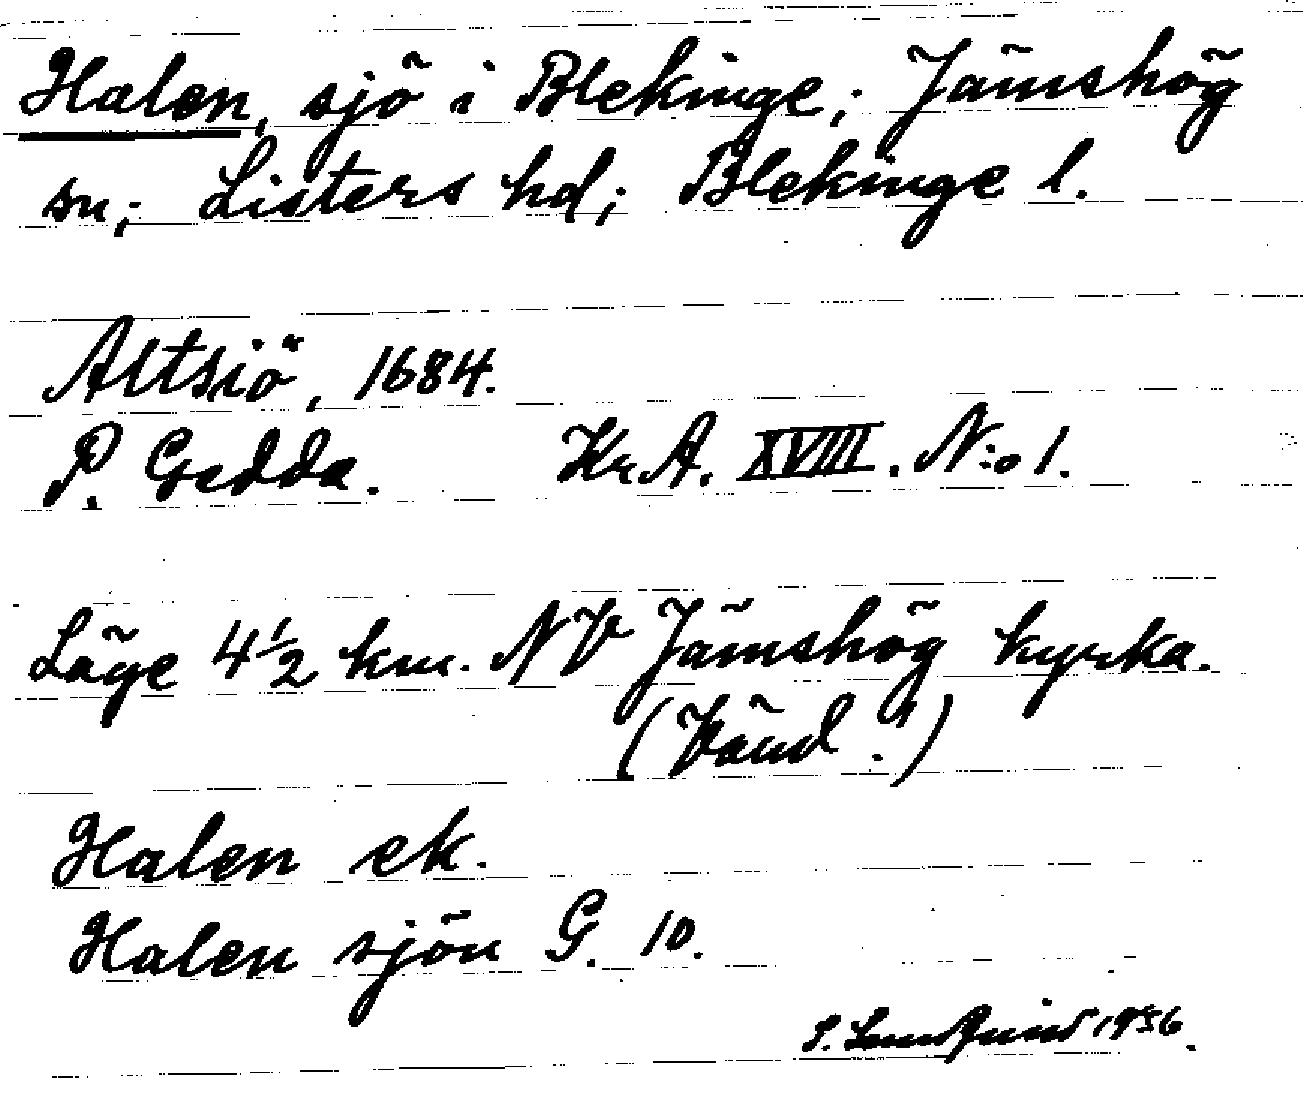 Halen, sjö i Blekinge; Jämshög
sn; Listers hd; Blekinge l.
Altsiö, 1684.
P. Gedda. Kr.A. XVIII. N:o 1.
Läge 4½ km. NV Jämshög kyrka.
(Vänd!)
Halen ek.
Halen sjön G. 10.
S. 1956.